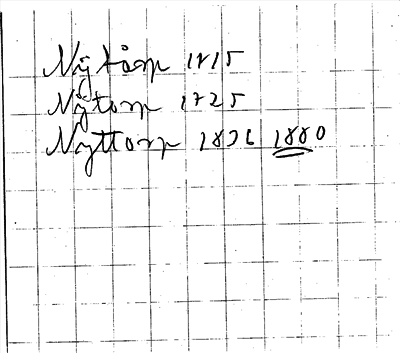 Nytorp 1715
Nytorp 1725
Nyttorp 1826 1880